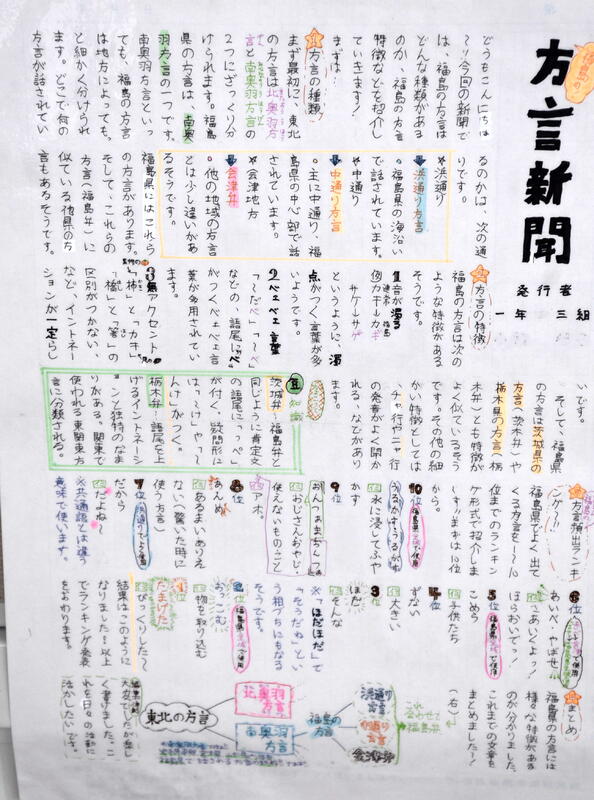 福島の
方言新聞
発行者
一年三組
どうもこんにちは
～!!今回の新聞で
は、福島の方言は
どんな種類がある
のか、福島の方言の
特徴などを紹介し
ていきます!
まずは…
方言の種類
まず最初に、東北
の方言は北奥羽方
言と南奥羽方言の
2つにざっくり分
けられます。福島
県の方言は、南奥
羽方言の一つです。
南奥羽方言といっ
ても、福島の方言
は地方によっても、
と細かく分けられ
ます。どこで何の
方言が話されてい
るのかは、次の通
りです。
☆浜通り
➡浜通り方言
・福島県の海沿い
で話されています。
☆中通り
➡中通り方言
・主に中通り、福
島県の中心部で話
されています。
☆会津地方
➡会津弁
・他の地域の方言
とは少し違いがあ
るそうです。
福島県にはこれら
の方言があります。
そして、これらの
方言(福島弁)に
似ている他県の方
言もあるそうです。
方言の特徴
福島の方言は次の
ような特徴がある
そうです。
1音が濁る
例カキ→カギ
サケ→サゲ
というように、濁
点がつく言葉が多
いようです。
2ベェベェ言葉
「～だべ」「～べ」
などの語尾に「べ」
がつくベェベェ言
葉が多用されてい
ます。
3無アクセント
「柿」と「カキ」、
「橋」と「箸」の
区別がつかない
など、イントネー
ションが一定らし
いです。
そして、福島県
の方言は茨城県の
方言(茨木弁)や
栃木県の方言(栃
木弁)とも特徴が
よく似ているそう
です。その他の細
かい特徴としては
チャ行やニャ行
の発音がよく聞か
れる、などがあり
ます。
豆知識
茨城弁…福島弁と
同じように肯定文
の語尾に「っぺ」
が付く、疑問形に
は「っけ」や「～
んけ」がつく。
栃木弁…語尾を上
げるイントネーシ
ョン、独特のなま
りがある。関東で
使われる東関東方
言に分類される。
方言頻出ランキ
ング～!!
福島県でよく出て
くる方言を1～10
位までのランキン
グ形式で紹介しま
す!!まずは10位
から。
10位
うるかす
水に浸してふや
かす
9位
おじさんおやじ、
使えないもの、こと
アホ。
8位
あんめ
あるまい、ありえ
ない(驚いた時に
使う方言)
7位
だから
だよね～
※共通語とは違う
意味で使います。
6位
あいべ・やばせ
さあいくよっ!
ほらおいでっ!
5位
こめら
子供たち
4位
ずない
大きい
3位
ほだ
そんな
※「ほだほだ」で
「そうだね」とい
う相づちにもなる
そうです。
2位
おっこむ
物を取り込む
1位
たまげた
びっくりした～
結果はこのように
なりました!以上
でランキング発表
をおわります。
まとめ
福島県の方言には
様々な特徴がある
のが分かりました。
これまでの文章を
まとめました～!
(右)
東北の方言
北奥羽方言
南奥羽方言
福島の方言
浜通り方言
中通り方言
会津弁
これ合わせて福島弁
編集後記
大変でしたが楽し
く書けました。こ
れを日々の活動に
活かしたいです。